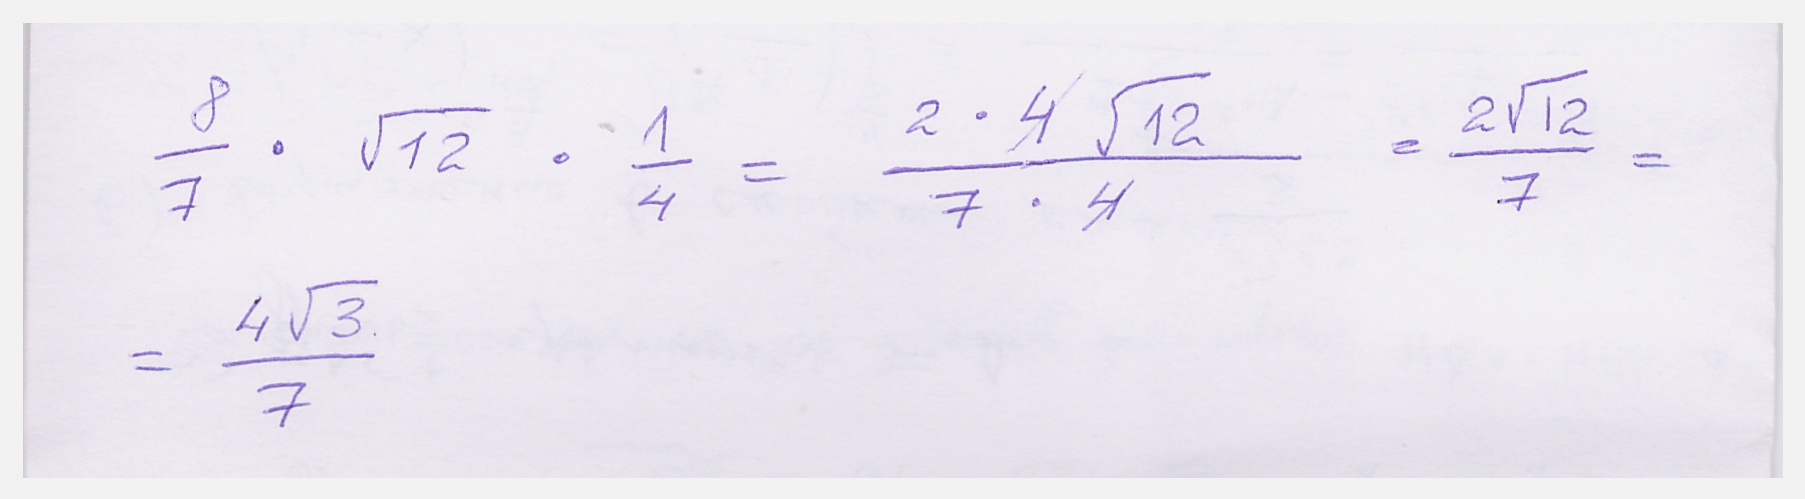 8/7 · √12 · 1/4 = (2 · 4√12)/(7 · 4) = (2√12)/7 =
= (4√3)/7